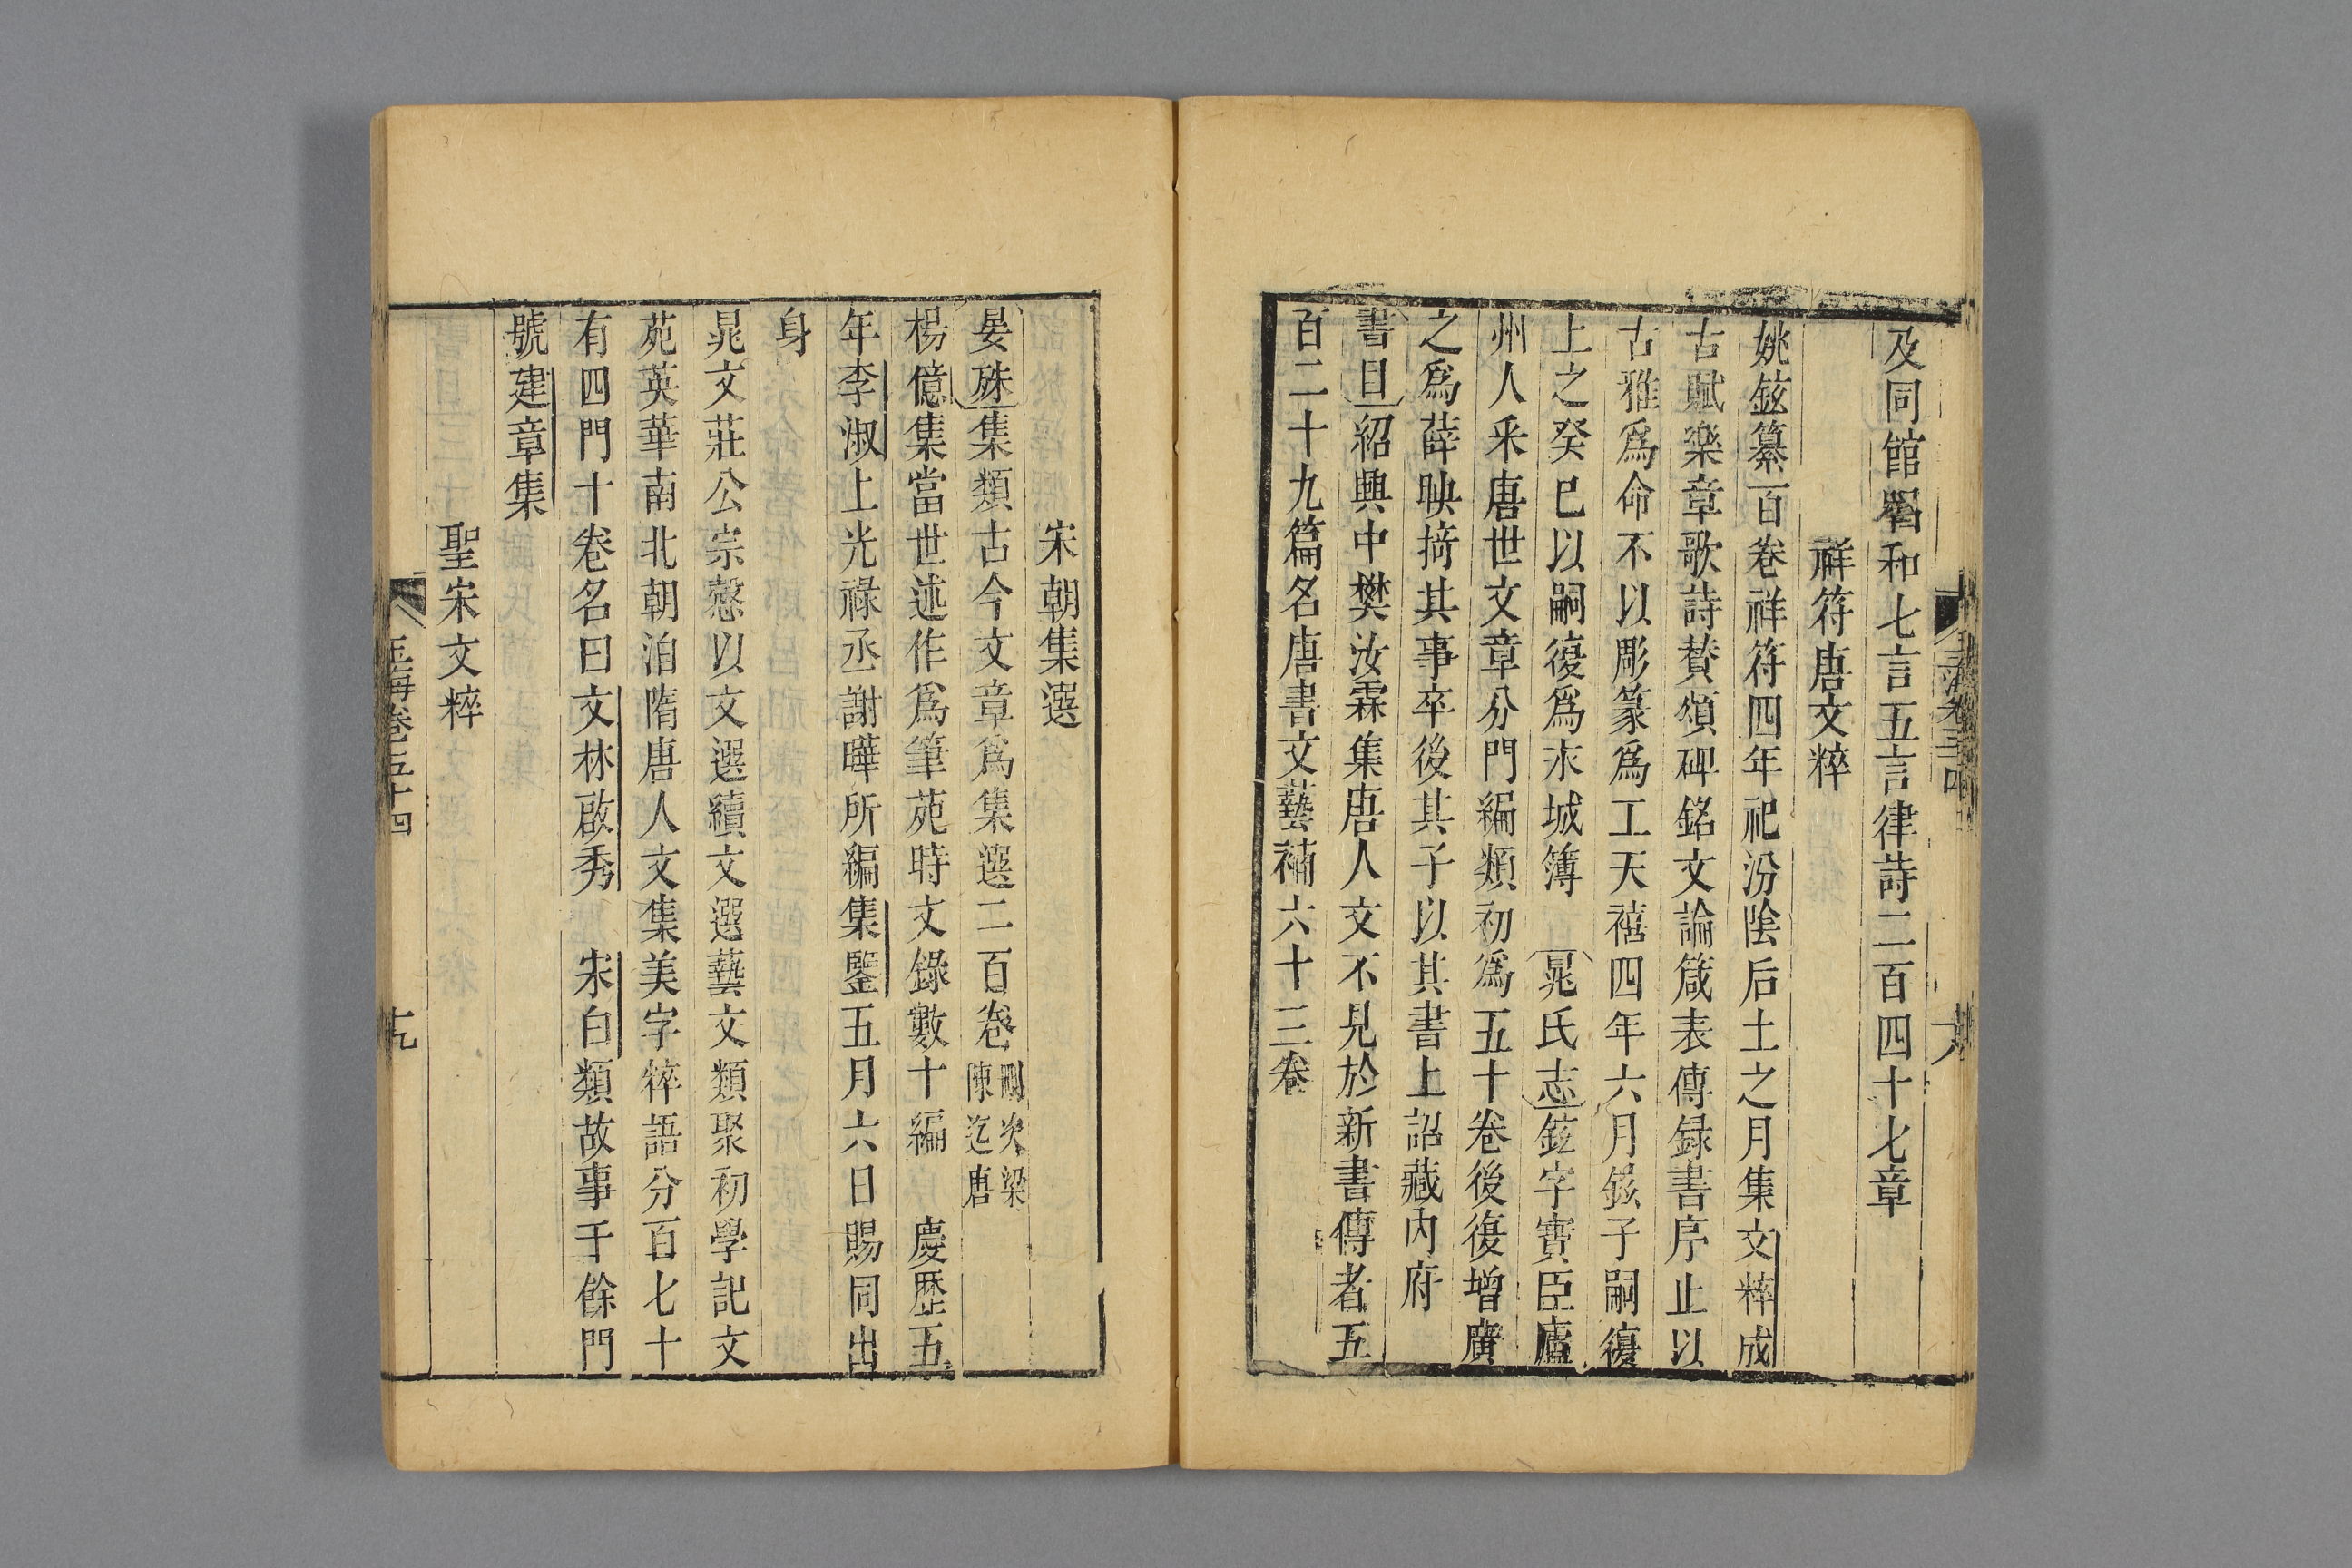 及同館酬和七言五言律詩二百四十七章
祥符唐文粹
姚鉉纂百卷祥符四年祀汾陰后土之月集文粹成
古賦樂章歌詩賛頌碑銘文論箴表傳録書序止以
古雅爲命不以彫篆爲工天禧四年六月鉉子嗣復
上之癸巳以嗣復爲永城簿 晁氏志鉉字寳臣廬
州人采唐世文章分門編類初爲五十卷後復增廣
之爲薛映掎其事卒後其子以其書上詔藏内府
書目紹興中樊汝霖集唐人文不見於新書傳者五
百二十九篇名唐書文藝補六十三卷
宋朝集選
晏殊集類古今文章爲集選二百卷刪次梁陳迄唐
楊億集當世述作爲筆苑時文錄數十編 慶歷五
年李淑上光祿丞謝曄所編集鑒五月六日賜同出
身
晁文莊公宗慤以文選續文選藝文類聚初學記文
苑英華南北朝洎隋唐人文集美字粹語分百七十
有四門十卷名曰文林啟秀 宋白類故事千餘門
號建章集
聖宋文粹
玉海卷五十四
十九